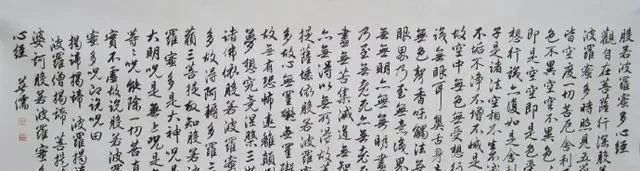 般若波羅蜜多心經
觀自在菩薩行深般若
波羅蜜多時照見五蘊
皆空度一切苦厄舍利
色不異空空不異色
即是空空即是色受
想行識亦復如是舍利
子是諸法空相不生不滅
不垢不淨不增不減是
故空中無色無受想行
識無眼耳鼻舌身意
無色聲香味觸法無
眼界乃至無無意識界
無無明亦無無明盡
乃至無老死亦無老死
盡無苦集滅道無智
亦無得以無所得故菩
提薩埵依般若波羅蜜
多故心無罣礙無罣礙
故無有恐怖遠離顛倒
夢想究竟涅槃三世
諸佛依般若波羅蜜
多故得阿耨多羅三
藐三菩提故知般若
羅蜜多是大神咒是
大明咒是無上咒是無
等等咒能除一切苦真
實不虛故說般若波羅
蜜多咒即說咒曰
揭諦揭諦 波羅揭諦
波羅僧揭諦 菩提薩
婆訶般若波羅蜜多
心經